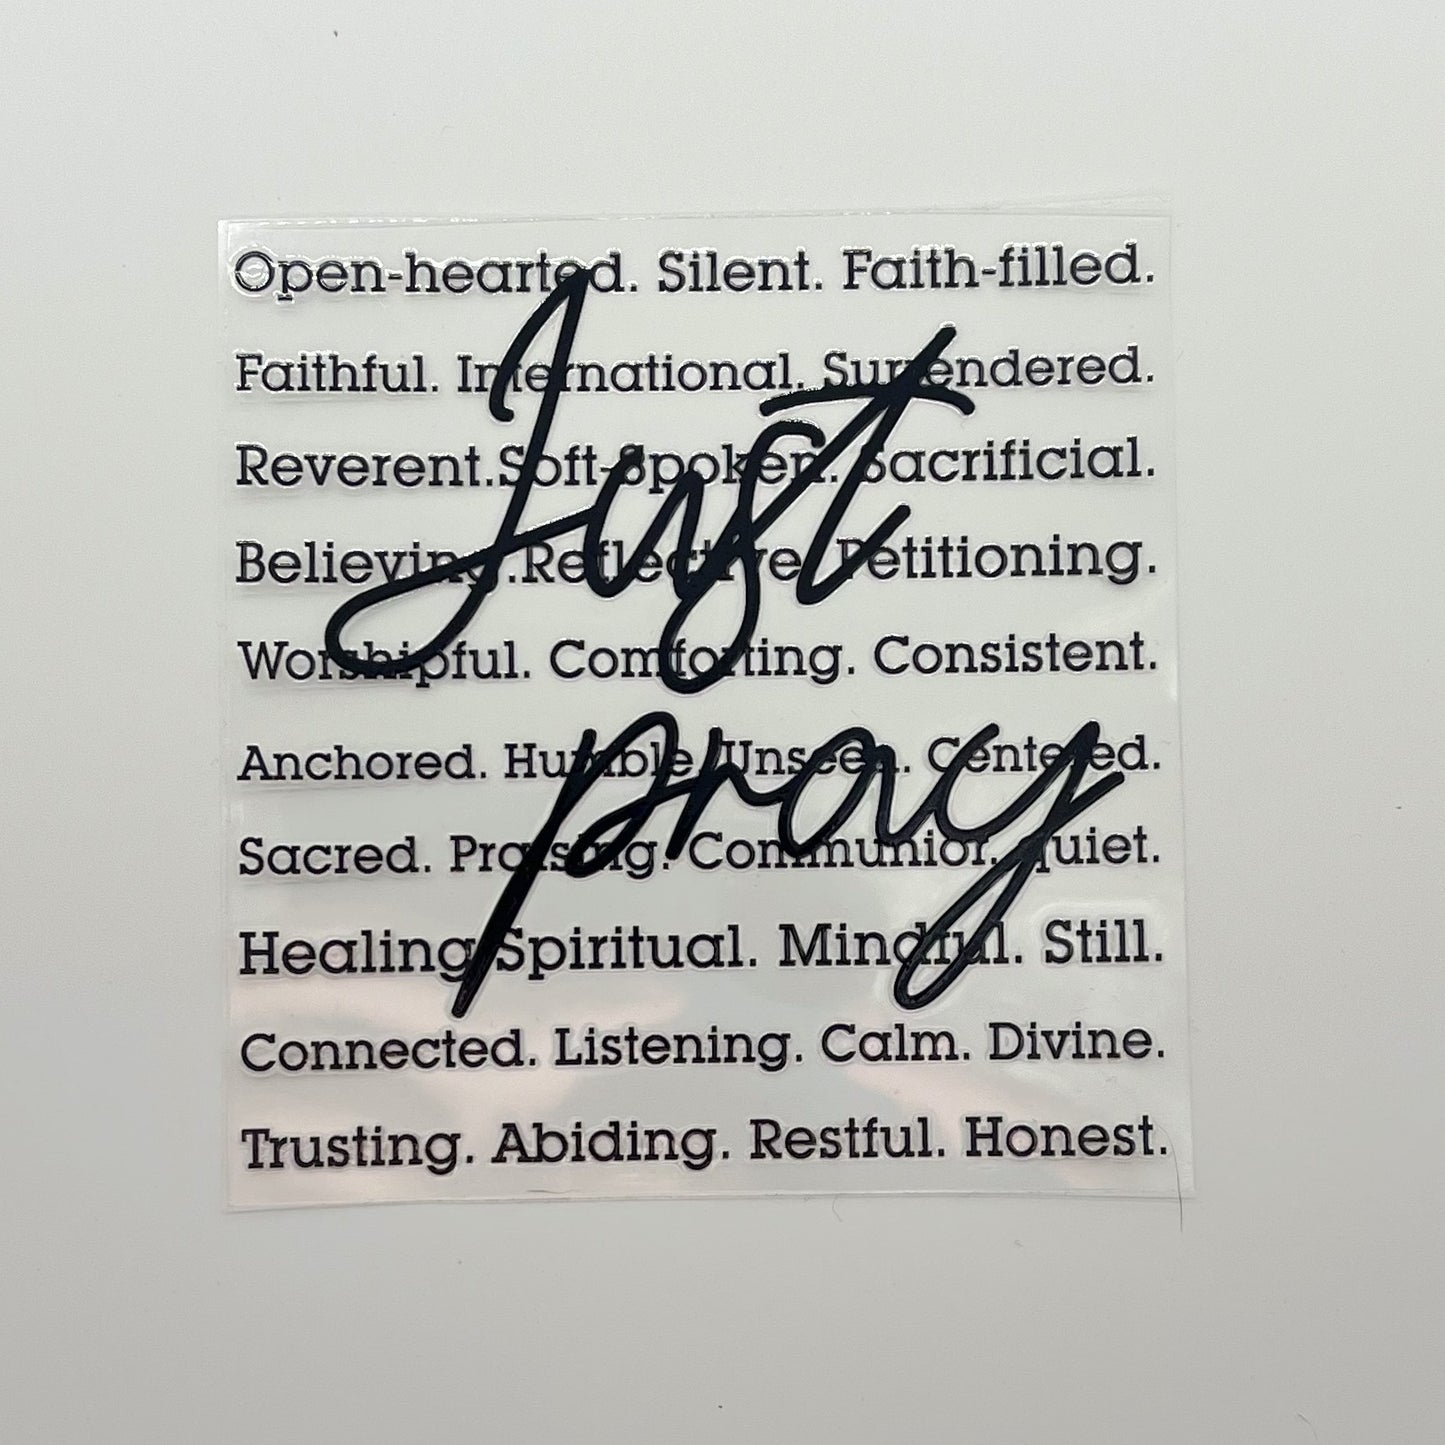 Open-hearted. Silent. Faith-filled.
Faithful. International. Surrendered.
Reverent.Soft-Spoken. Sacrificial.
Believing.Reflective. Petitioning.
Worshipful. Comforting. Consistent.
Anchored. Humble. Unseen. Centered.
Sacred. Praising. Communion. quiet.
Healing Spiritual. Mindful. Still.
Connected. Listening. Calm. Divine.
Trusting. Abiding. Restful. Honest.
Just
pray